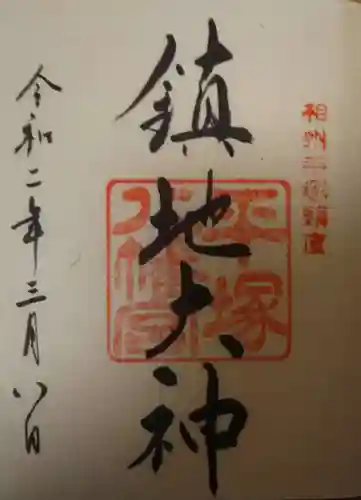 相州二之鎮座
鎮地大神
平塚八幡宮
令和二年三月八日